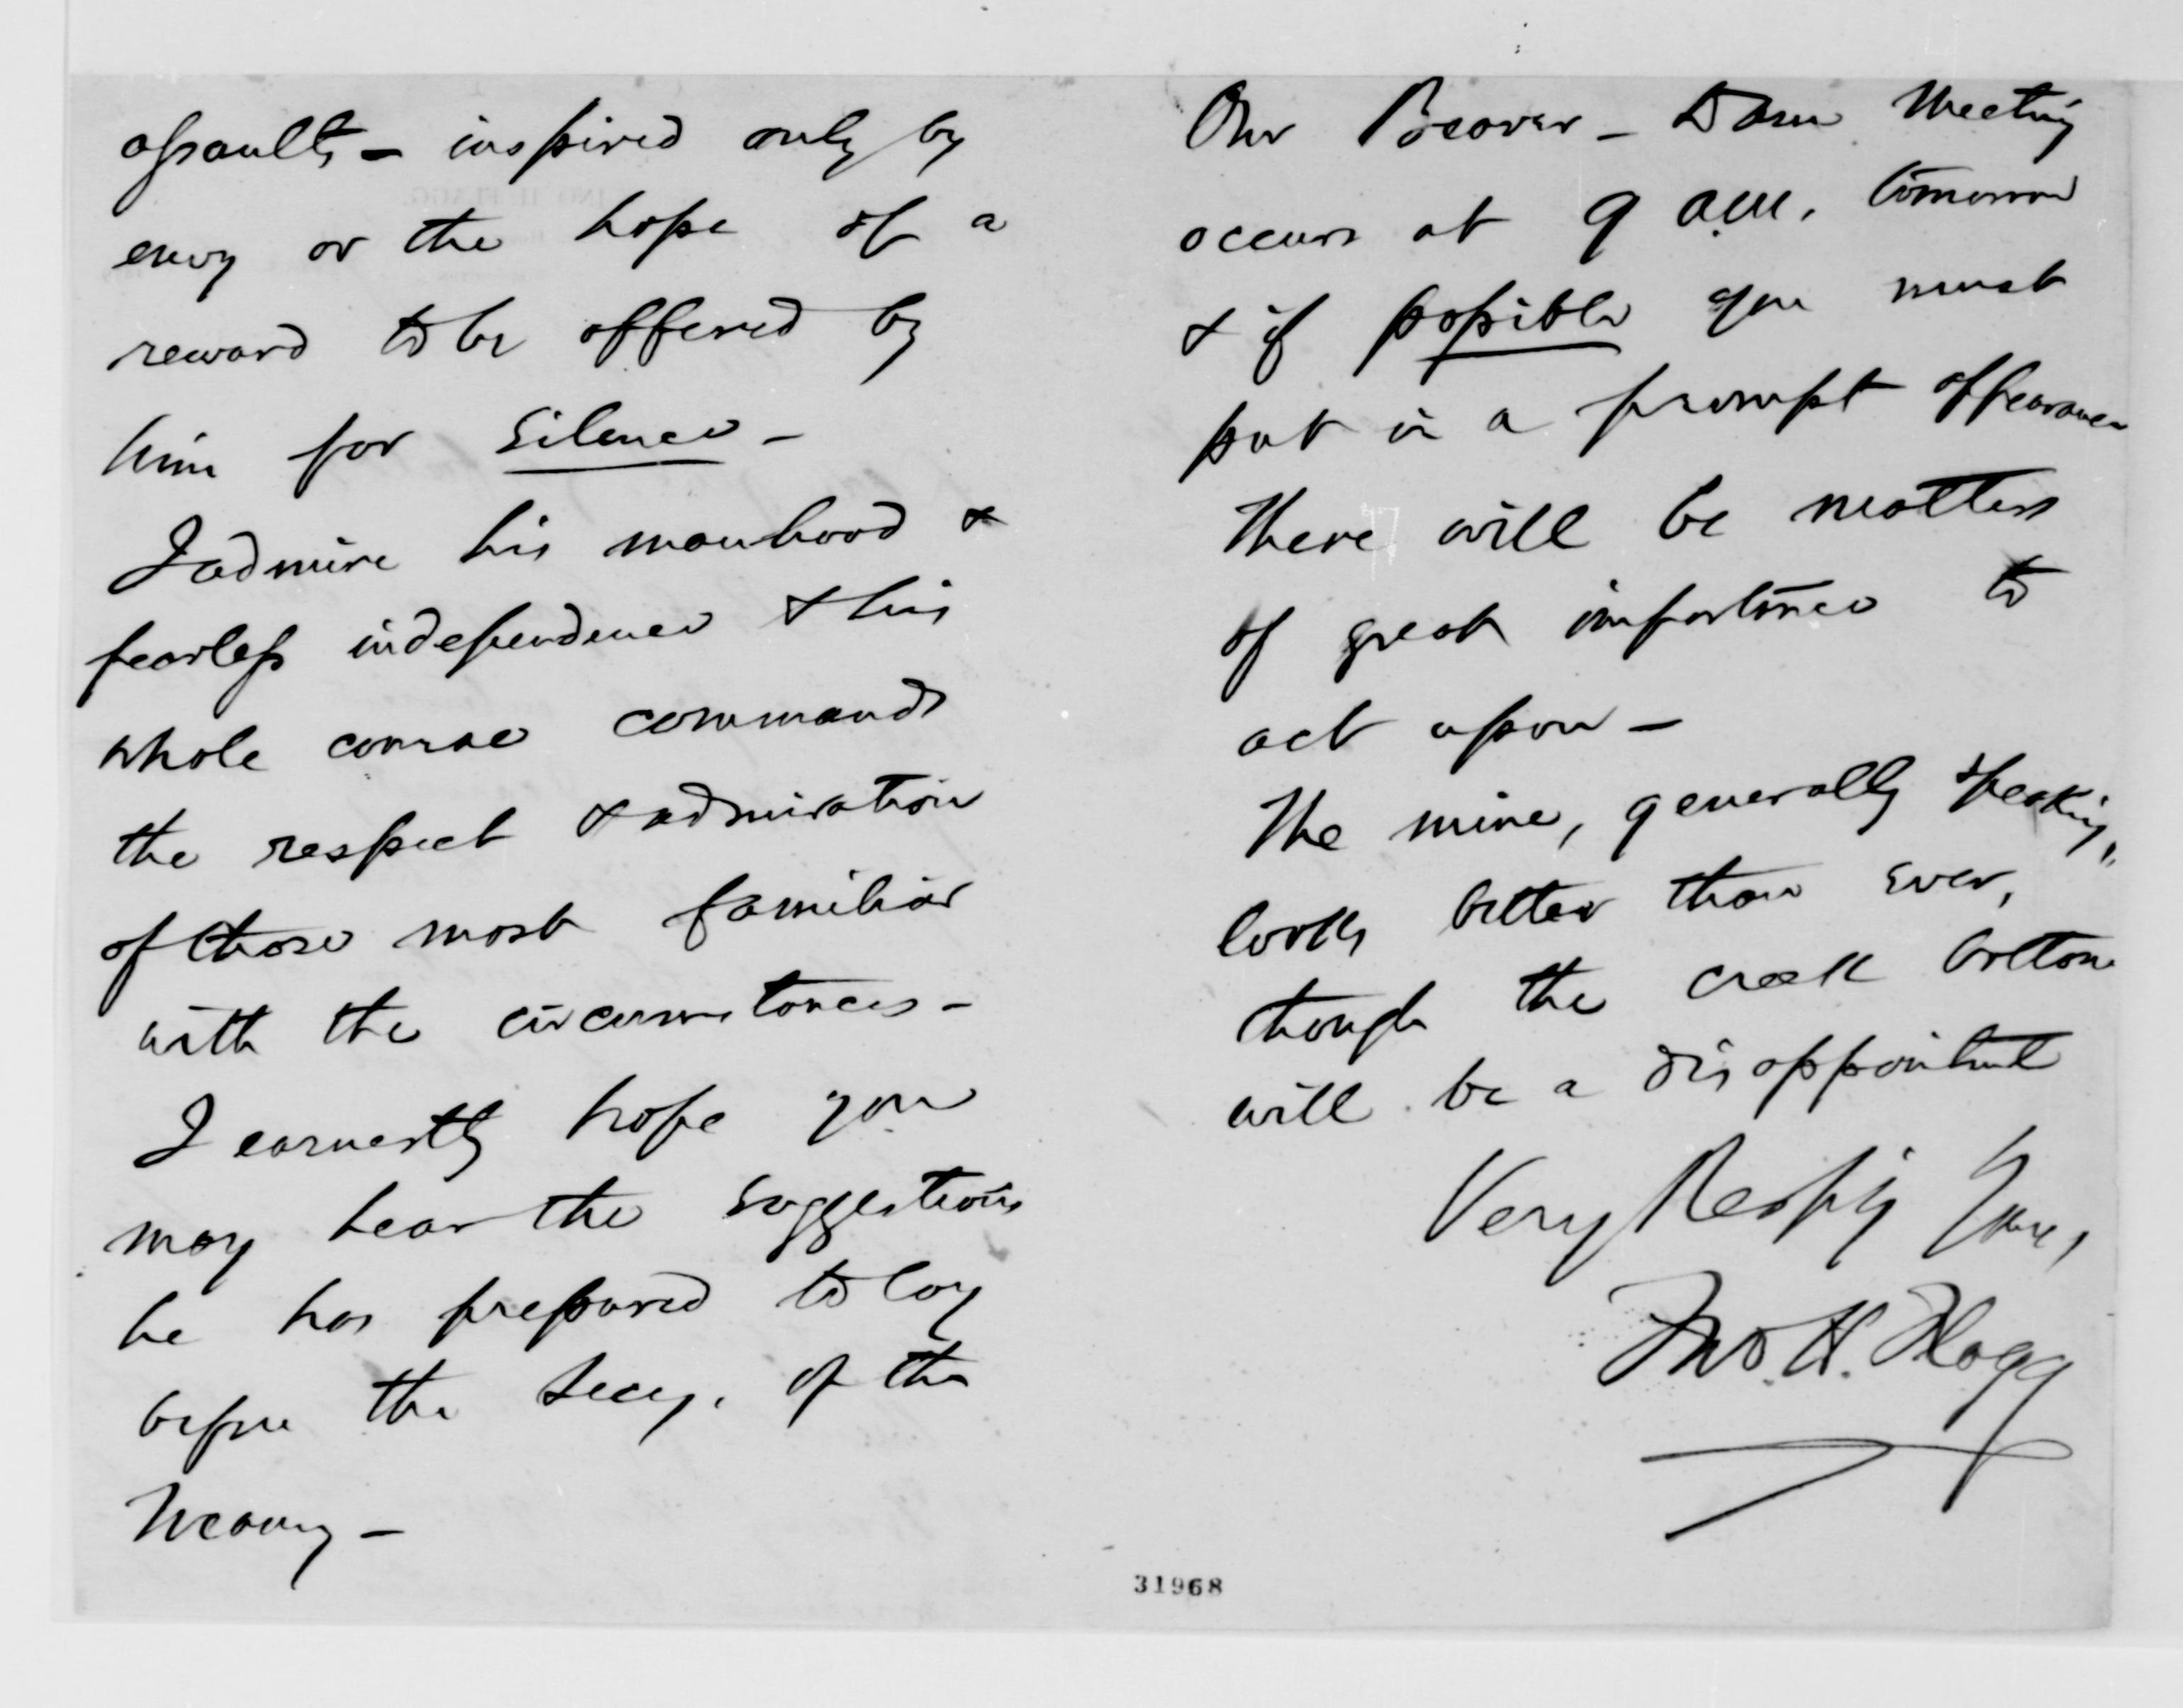 assaults - inspired only by
envy or the hope of a
reward to be offered by
him for silence -
I admire his manhood &
fearless independence & his
whole course commands
the respect & admiration
of those most familiar
with the circumstances -
I earnestly hope you
may hear the suggestions
he has prepared to lay
before the Secy. of the
Treasury -
Our Beaver - Dam Meeting
occurs at 9 a.m. tomorrow
& if possible you must
put in a prompt appearance
There will be matters
of great importance to
act upon -
The mine, generally speaking,
looks better than ever,
though the creek bottom
will be a disappointmt
Very Respfy Yours,
Jno. H. Flagg
31968